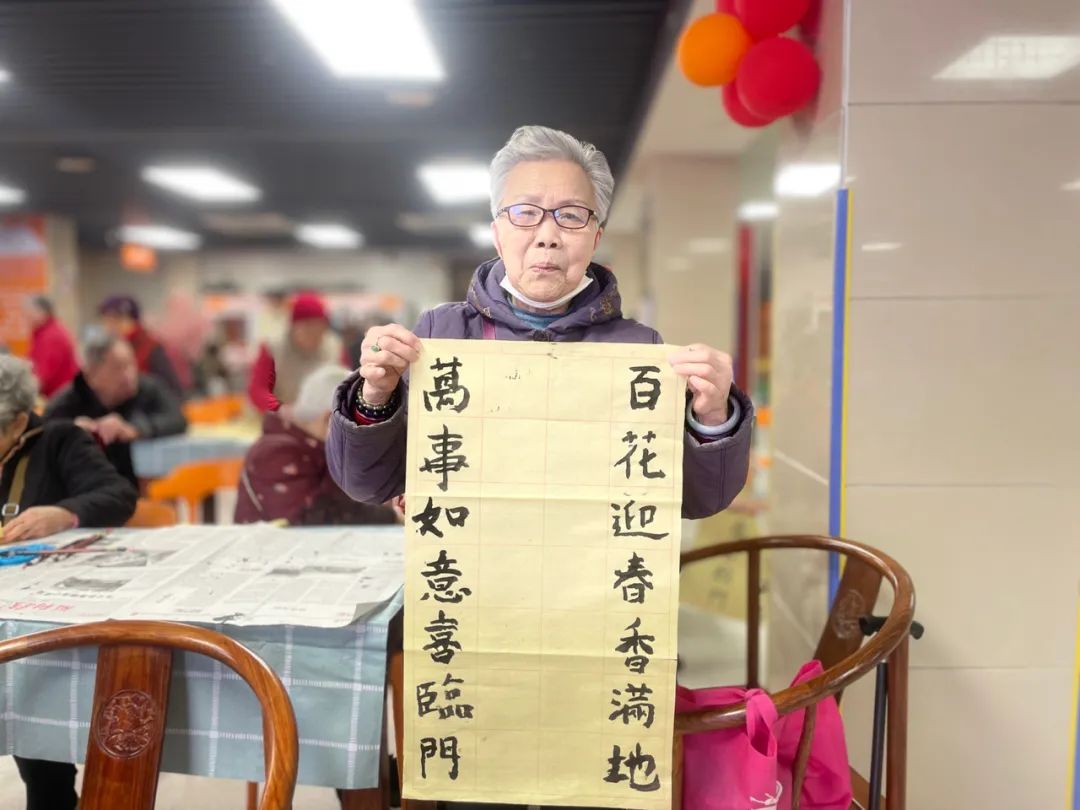 百花迎春香滿地
萬事如意喜臨門